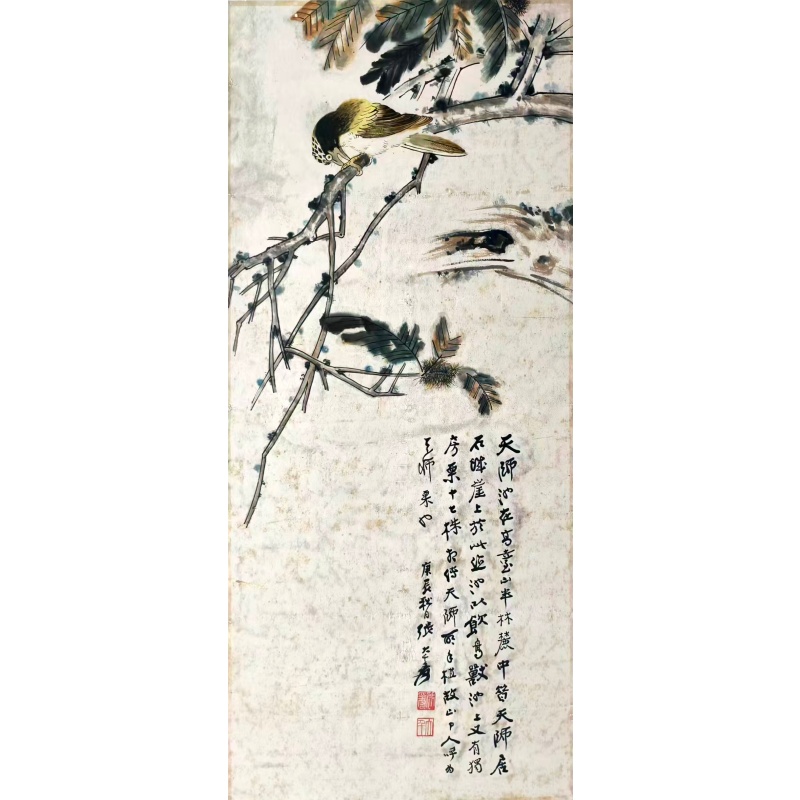 天師池在高臺山半林麓中昔天師居
石城崖上於此逗池以飲鳥獸池上又有獨
房栗十七株相傳天師所手植故山中人呼為
天師栗也
庚辰秋日張大千爰